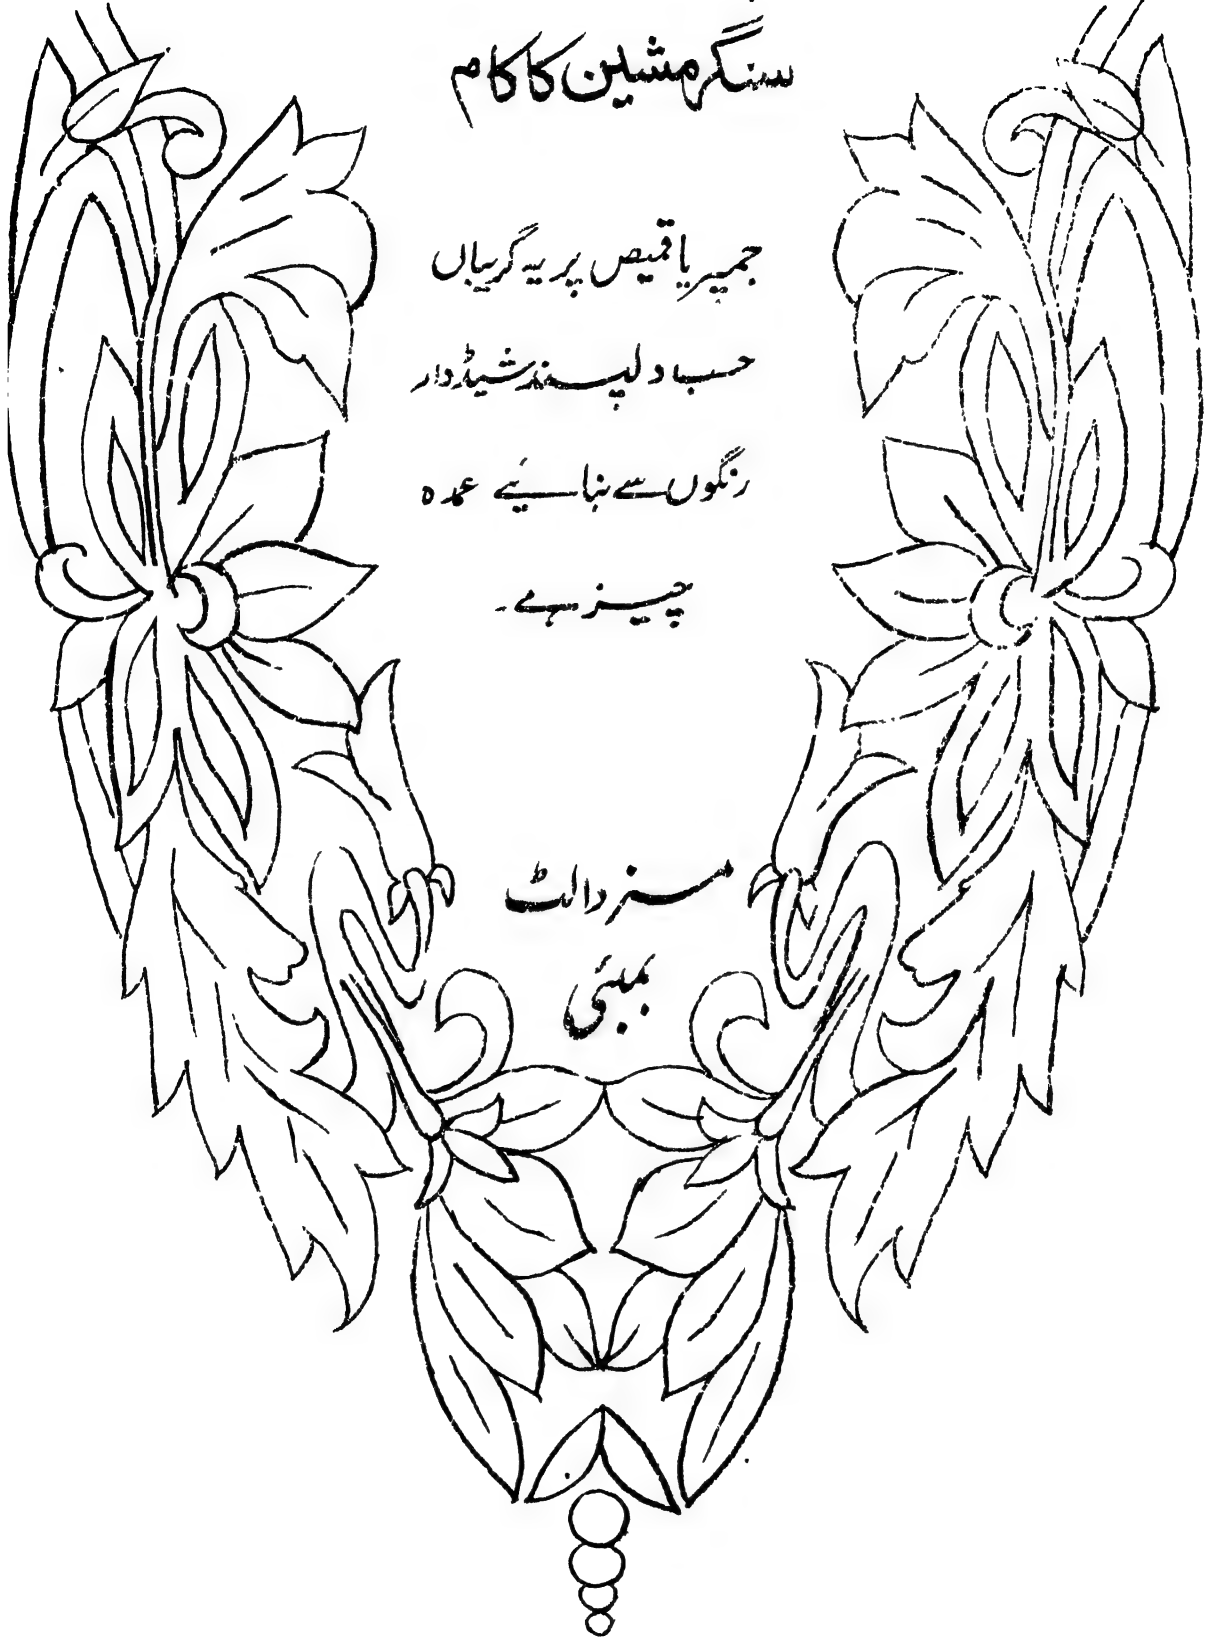 سنگر مشین کا کام
جمپر یا قمیص پر یہ گریباں
حسب دلپسند شیڈ دار
رنگوں سے بنائیے عمدہ
چیز ہے۔
مسز دالٹ
بمبئی